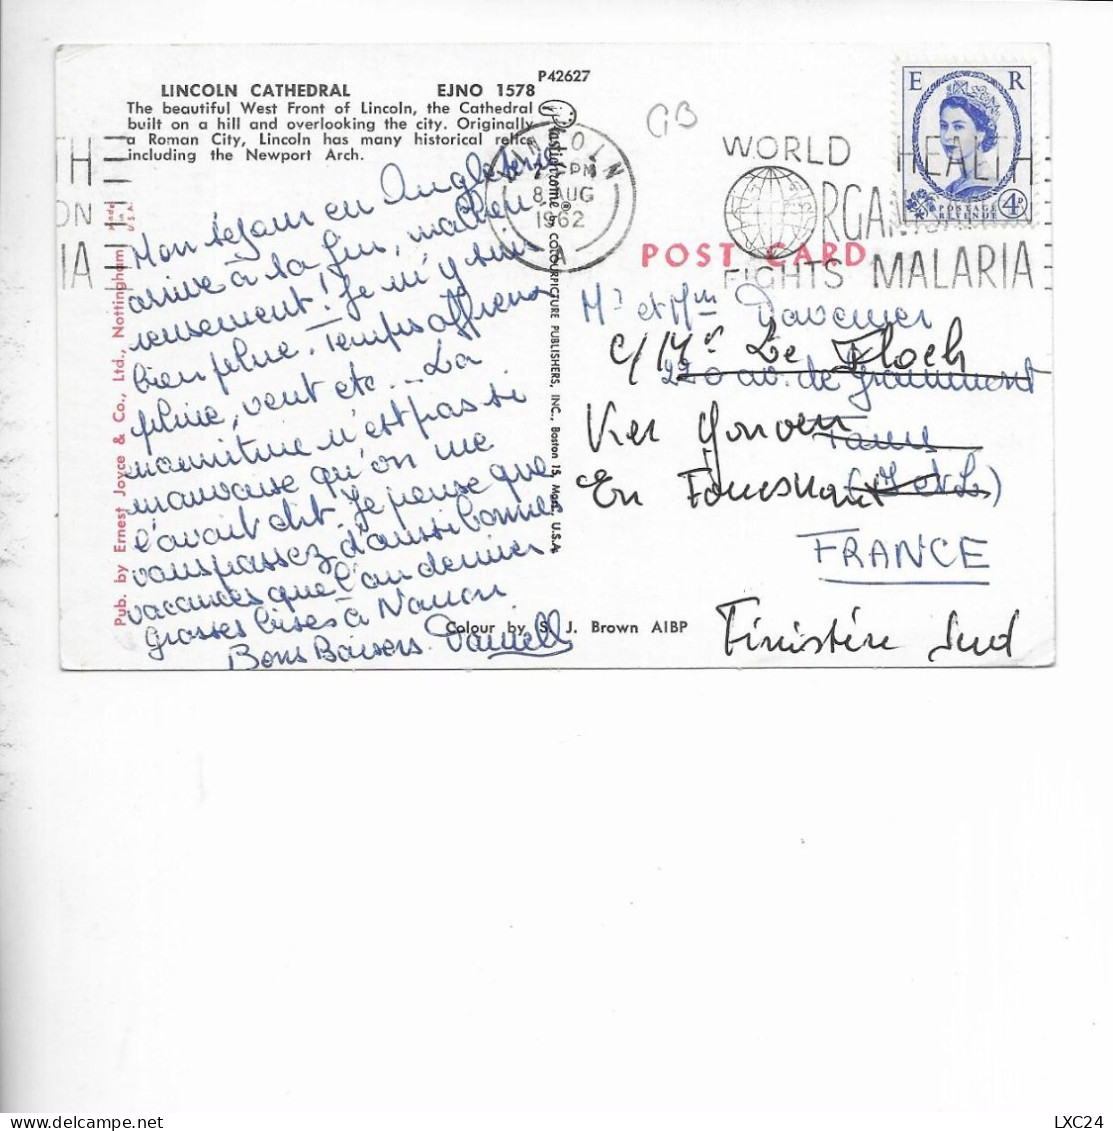 P42627
LINCOLN CATHEDRAL EJNO 1578
The beautiful West Front of Lincoln, the Cathedral
built on a hill and overlooking the city. Originally
a Roman City, Lincoln has many historical relics
including the Newport Arch.
GB
E R
POSTAGE
REVENUE
4D
LINCOLN
PM
8 AUG
1962
A
WORLD HEALTH
ORGANISATION
FIGHTS MALARIA
TH
ON
IA
POST CARD
Made
in
U.S.A.
Pub. by Ernest Joyce & Co., Ltd., Nottingham
Plastichrome ® by COLOURPICTURE PUBLISHERS, INC., Boston 15, Mass., U.S.A.
Mon séjour en Angleterre
arrive à sa fin, malheu
reusement! Je m'y suis
bien plue. Temps affreux
pluie, vent etc... La
nourriture n'est pas si
mauvaise qu'on me
l'avait dit. Je pense que
vous passez d'aussi bonnes
vacances que l'an dernier
Grosses bises à Nanon
Bons Baisers. Danielle
Colour by S. J. Brown AIBP
Mr et Mme
c/ Mr Le Floch
220 av. de Grammont
Ker
Tours
En Fouesnant
(I et L)
FRANCE
Finistère Sud
LXC24